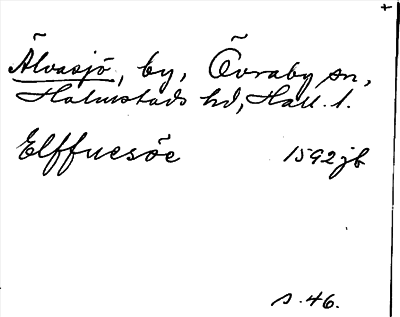 Älvasjö, by, Övraby sn,
Halmstads hd, Hall. l.
Elffuesöe 1592 jb
s. 46.